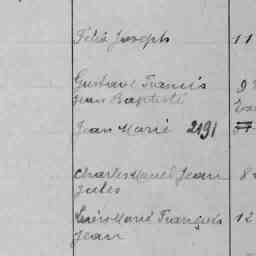 Félix Joseph 11
Gustave Francis 9
Jean Baptiste
Jean Marie 2191
Charles Manuel Jean 8
Jules
Louis Marie François 12
Jean